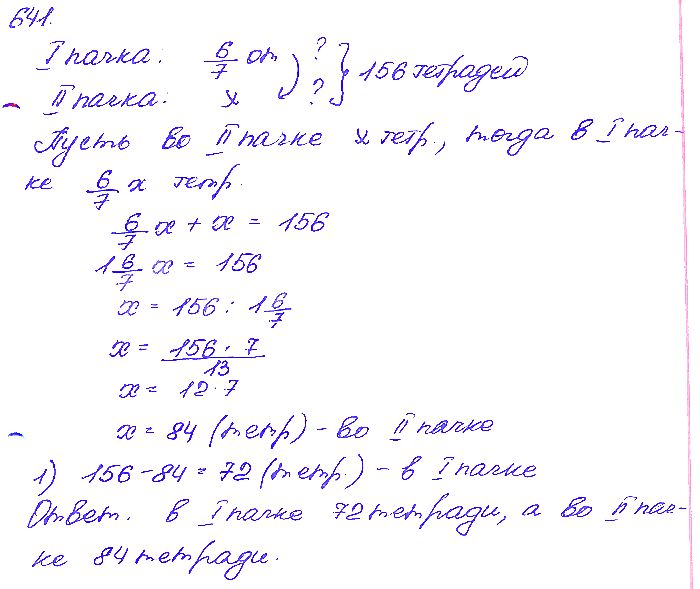 641.
I пачка: 6/7 от ? } 156 тетрадей
II пачка: x ?
Пусть во II пачке x тетр., тогда в I пач-
ке 6/7 x тетр.
6/7 x + x = 156
1 6/7 x = 156
x = 156 : 1 6/7
x = 156 · 7 / 13
x = 12 · 7
x = 84 (тетр) - во II пачке
1) 156 - 84 = 72 (тетр.) - в I пачке
Ответ. в I пачке 72 тетради, а во II пач-
ке 84 тетради.